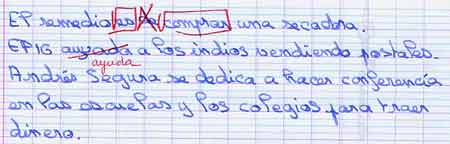 El remedio es de comprar una secadora.
a los indios vendiendo postales.
ayuda
Andrés Segura se dedica a hacer conferencia
en las escuelas y los colegios para traer
dinero.